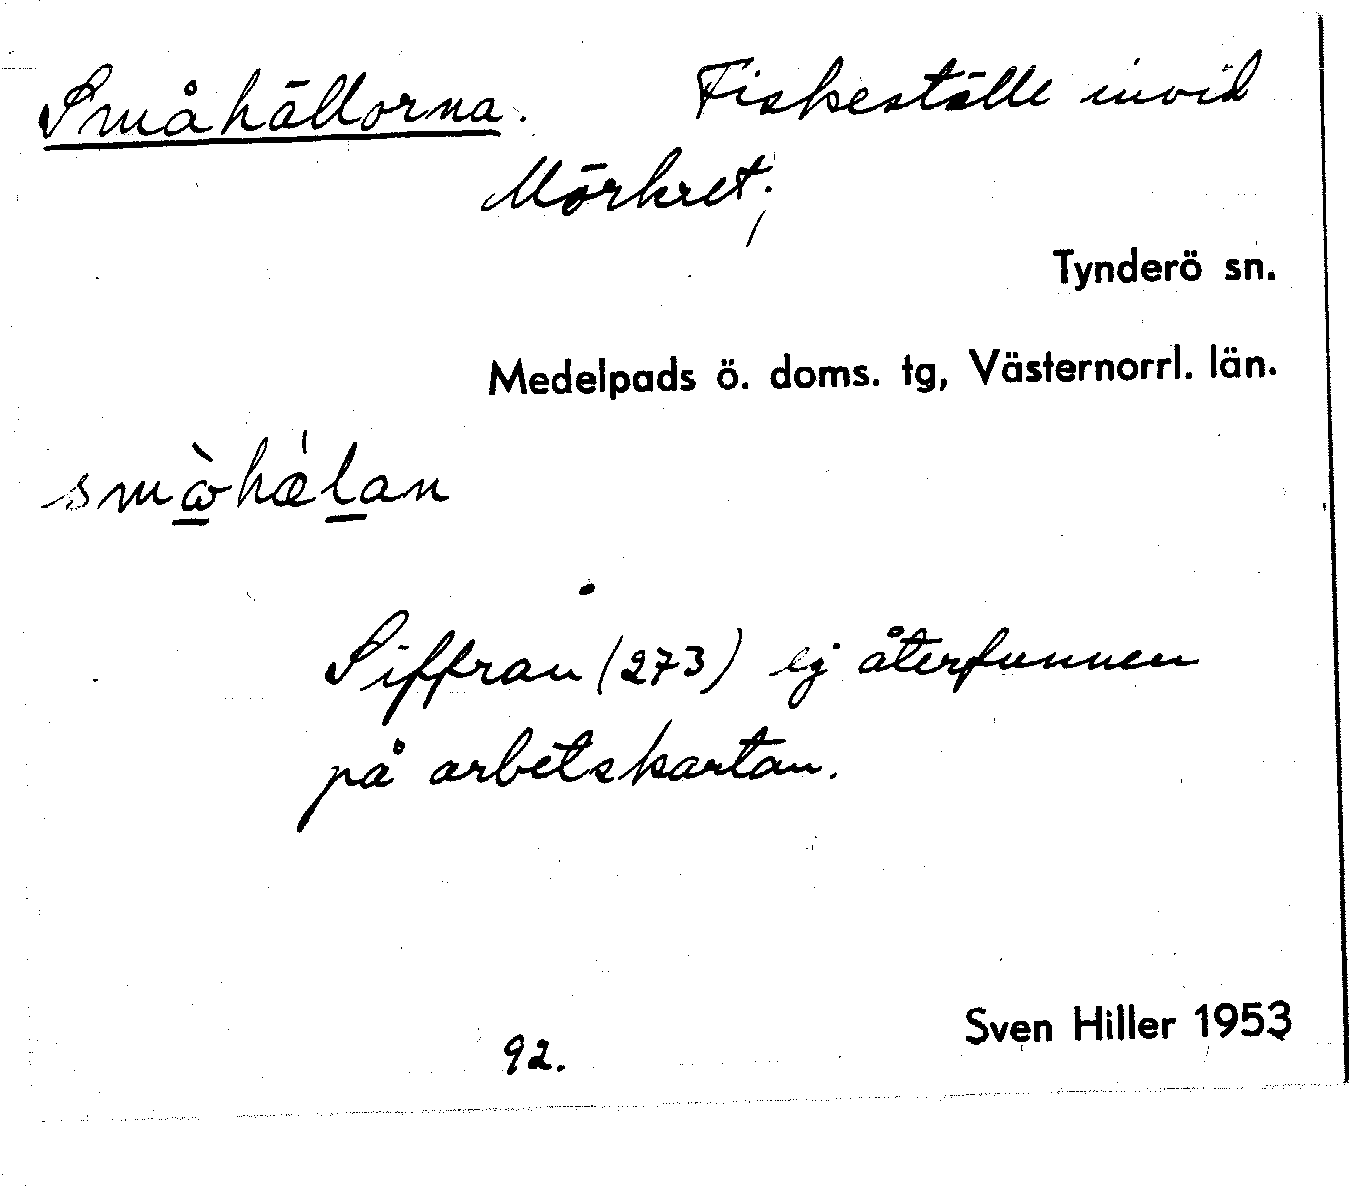 Småhällorna. Fiskeställe invid
Mörkret;
Tynderö sn.
Medelpads ö. doms. tg, Västernorrl. län.
Siffran (273) ej återfunnen
på arbetskartan.
92.
Sven Hiller 1953